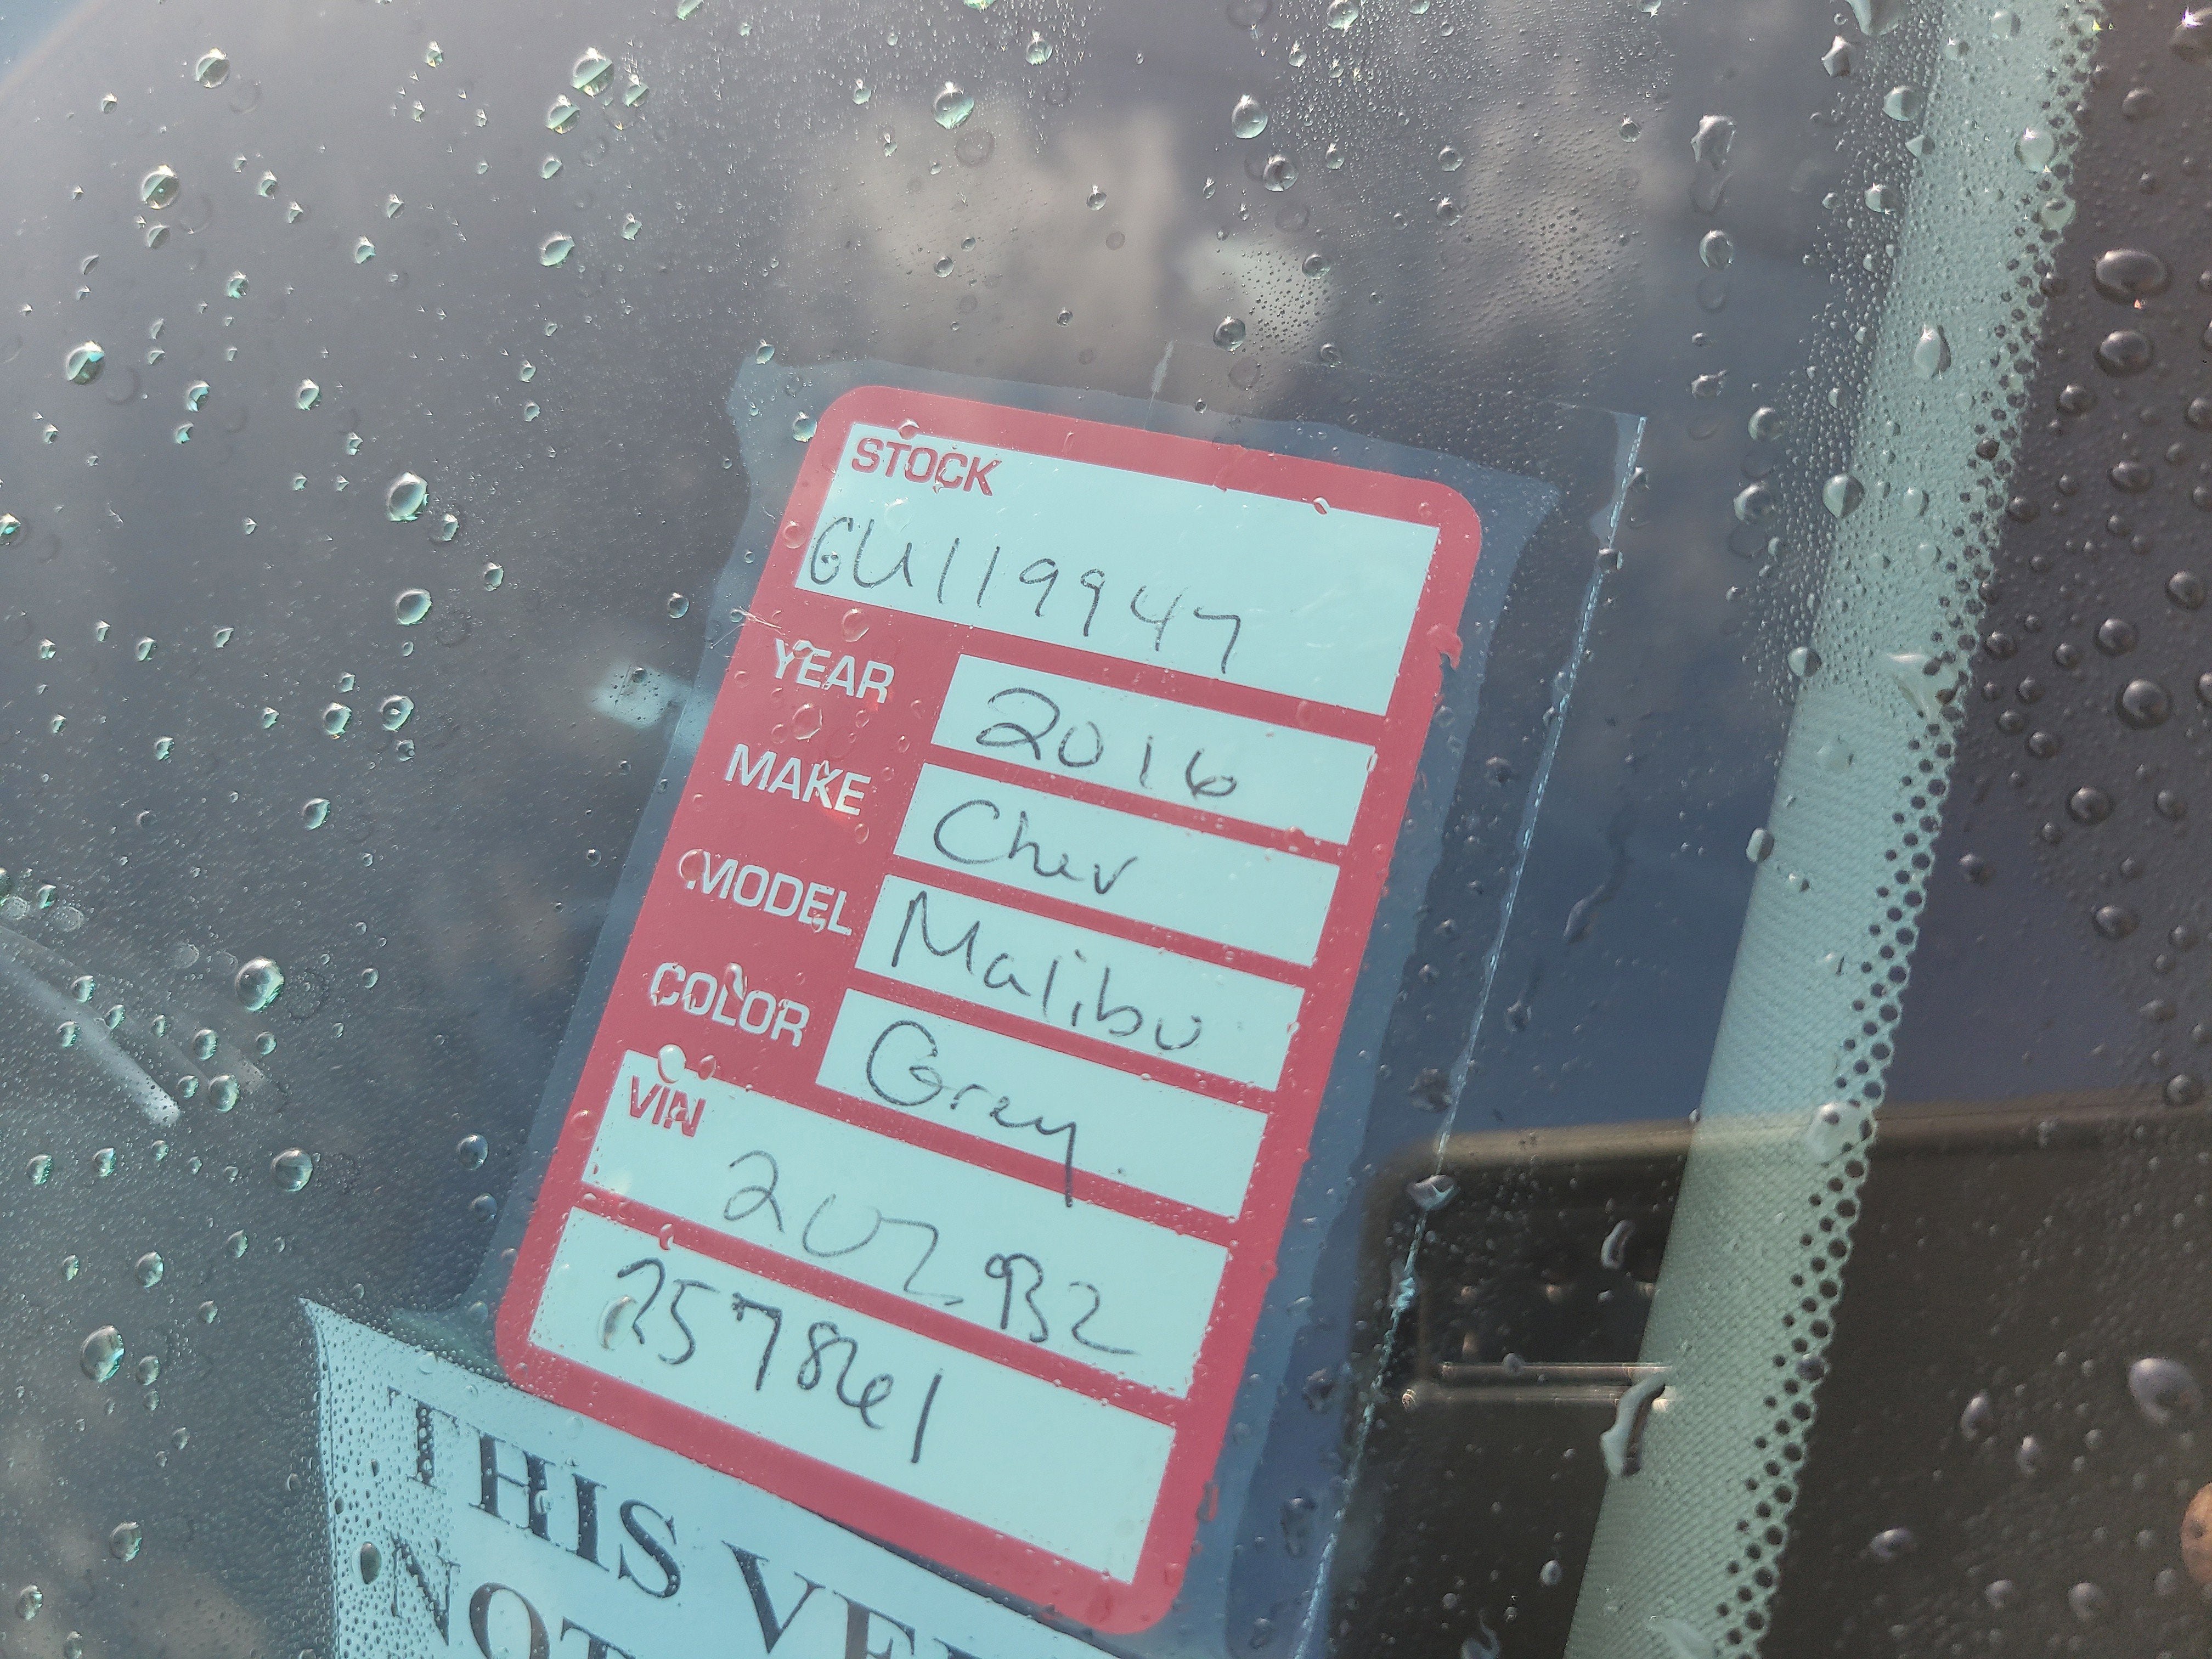 STOCK
GU119947
YEAR 2016
MAKE Chev
MODEL Malibu
COLOR Grey
VIN
257861
THIS